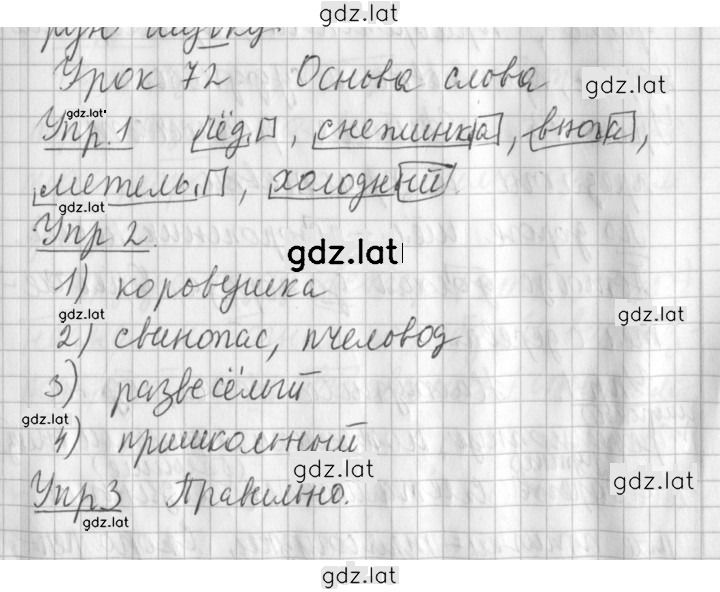 gdz.lat
Урок 72 Основа слова
gdz.lat
gdz.lat
Упр. 1 лёд, снежинка, вьюга,
метель, холодный
gdz.lat
Упр 2.
gdz.lat
1) коровушка
gdz.lat
gdz.lat
2) свинопас, пчеловод
3) развесёлый
gdz.lat
4) пришкольный
gdz.lat
gdz.lat
Упр 3 Правильно.
gdz.lat
gdz.lat